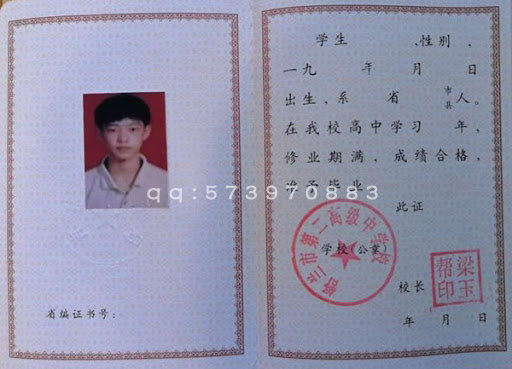 省编证书号:
qq:573970883
学生 、性别,
一九 年 月 日
出生,系 省 市县 人。
在我校高中学习 年,
修业期满,成绩合格,
准予毕业
此证
舒兰市第二高级中学校
学校(公章)
校长
梁玉帮印
年 月 日